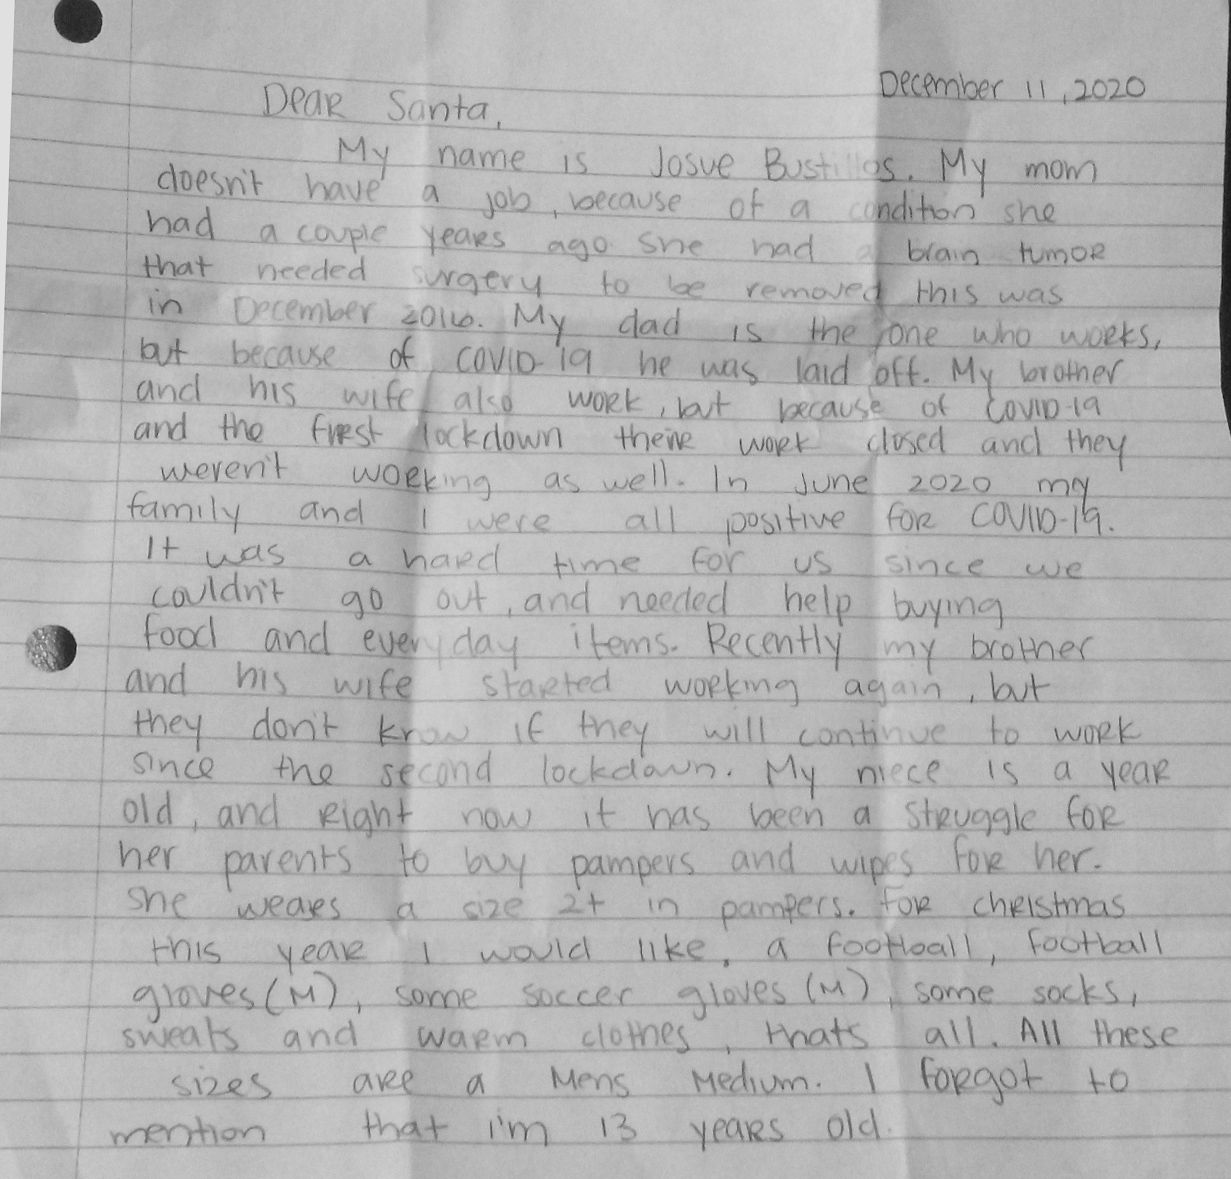 December 11, 2020
Dear Santa,
My name is Josue Bustillos. My mom
doesn't have a job, because of a condition she
had a couple years ago she had a brain tumor
that needed surgery to be removed this was
in December 2016. My dad is the one who works,
but because of COVID-19 he was laid off. My brother
and his wife also work, but because of COVID-19
and the first lockdown there work closed and they
weren't working as well. In June 2020 my
family and I were all positive for COVID-19.
It was a hard time for us since we
couldn't go out, and needed help buying
food and everyday items. Recently my brother
and his wife started working again, but
they don't know if they will continue to work
since the second lockdown. My niece is a year
old, and right now it has been a struggle for
her parents to buy pampers and wipes for her.
She wears a size 2+ in pampers. For christmas
this year I would like, a football, football
gloves (M), some soccer gloves (M), some socks,
sweats and warm clothes, thats all. All these
sizes are a Mens Medium. I forgot to
mention that i'm 13 years old.